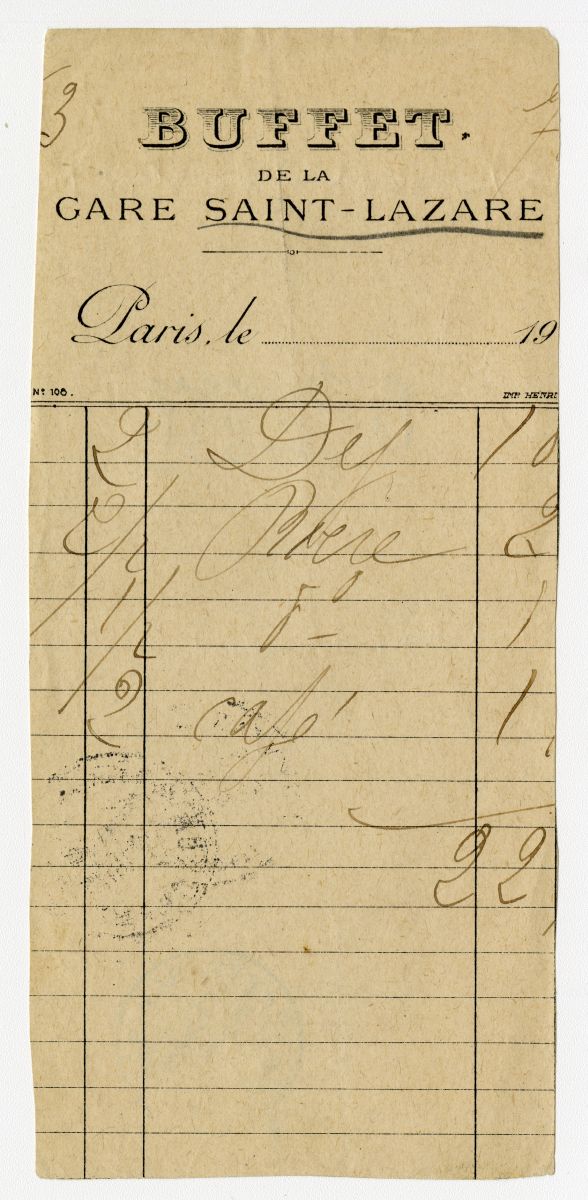 3
BUFFET.
DE LA
GARE SAINT-LAZARE
Paris, le 19
Nº 106. IMP. HENRI
2 Dej 10
2
1/2 1
2 café 1,
22,